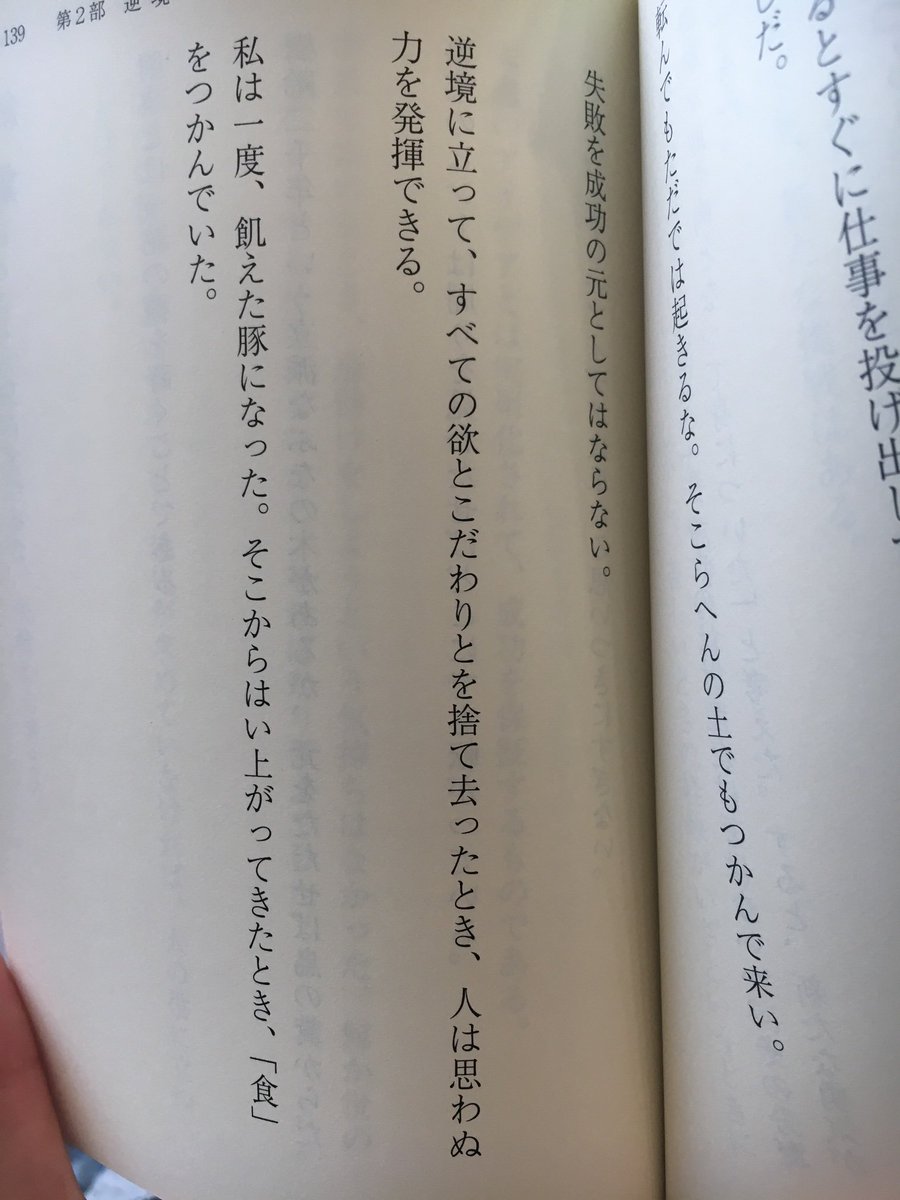 るとすぐに仕事を投げ出し
だ。
転んでもただでは起きるな。そこらへんの土でもつかんで来い。
失敗を成功の元としてはならない。
逆境に立って、すべての欲とこだわりとを捨て去ったとき、人は思わぬ
力を発揮できる。
私は一度、飢えた豚になった。そこからはい上がってきたとき、「食」
をつかんでいた。
139 第2部 逆境